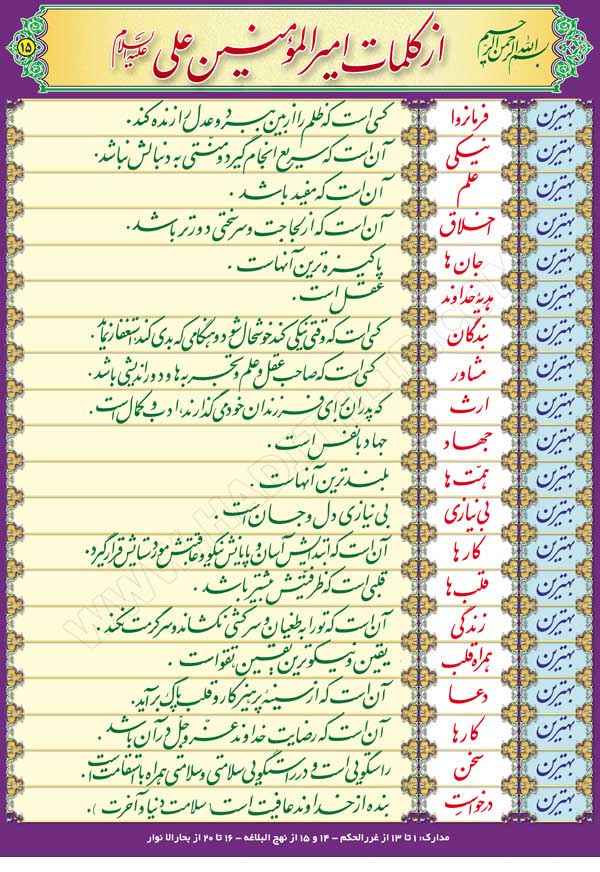 بسم الله الرحمن الرحیم
از کلمات امیرالمؤمنین علی علیه السلام
۱۵
بهترین فرمانروا کسی است که ظلم را از بین ببرد و عدل را زنده کند.
بهترین نیکی آن است که سریع انجام گیرد و منتی به دنبالش نباشد.
بهترین علم آن است که مفید باشد.
بهترین اخلاق آن است که از لجاجت و سرسختی دورتر باشد.
بهترین جان ها پاکیزه ترین آنهاست.
بهترین هدیه خداوند عقل است.
بهترین بندگان کسی است که وقتی نیکی کند خوشحال شود و هنگامی که بدی کند، استغفار نماید.
بهترین مشاور کسی است که صاحب عقل و علم و تجربه ها و دوراندیشی باشد.
بهترین ارث که پدران برای فرزندان خود می گذارند، ادب و کمال است.
بهترین جهاد جهاد با نفس است.
بهترین همّت ها بلندترین آنهاست.
بهترین بی نیازی بی نیازی دل و جان است.
بهترین کارها آن است که ابتدایش آسان و پایانش نیکو و عاقبتش مورد ستایش قرار گیرد.
بهترین قلب ها قلبی است که ظرفیتش بیشتر باشد.
بهترین زندگی آن است که تو را به طغیان و سرکشی نکشاند و سرگرمت نکند.
بهترین همراه قلب یقین و نیکوترین یقین تقواست.
بهترین دعا آن است که از سینه پرهیزکار و قلب پاک برآید.
بهترین کارها آن است که رضایت خداوند عزّ و جلّ در آن باشد.
بهترین سخن راستگویی است و در راستگویی سلامتی و سلامتی همراه با استقامت است.
بهترین درخواستِ بنده از خداوند عافیت است (سلامت دنیا و آخرت).
مدارک: ۱ تا ۱۳ از غررالحکم – ۱۴ و ۱۵ از نهج البلاغه – ۱۶ تا ۲۰ از بحارالا نوار